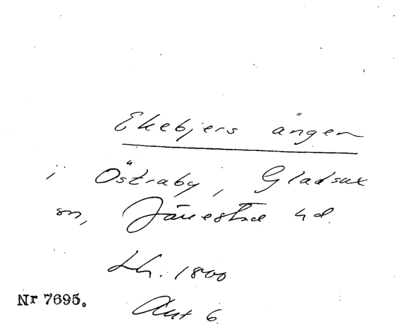 Ekebjers ängen
i Östraby, Gladsax
sn, Järrestad hd.
Lh. 1800
Akt 6
Nr 7695.